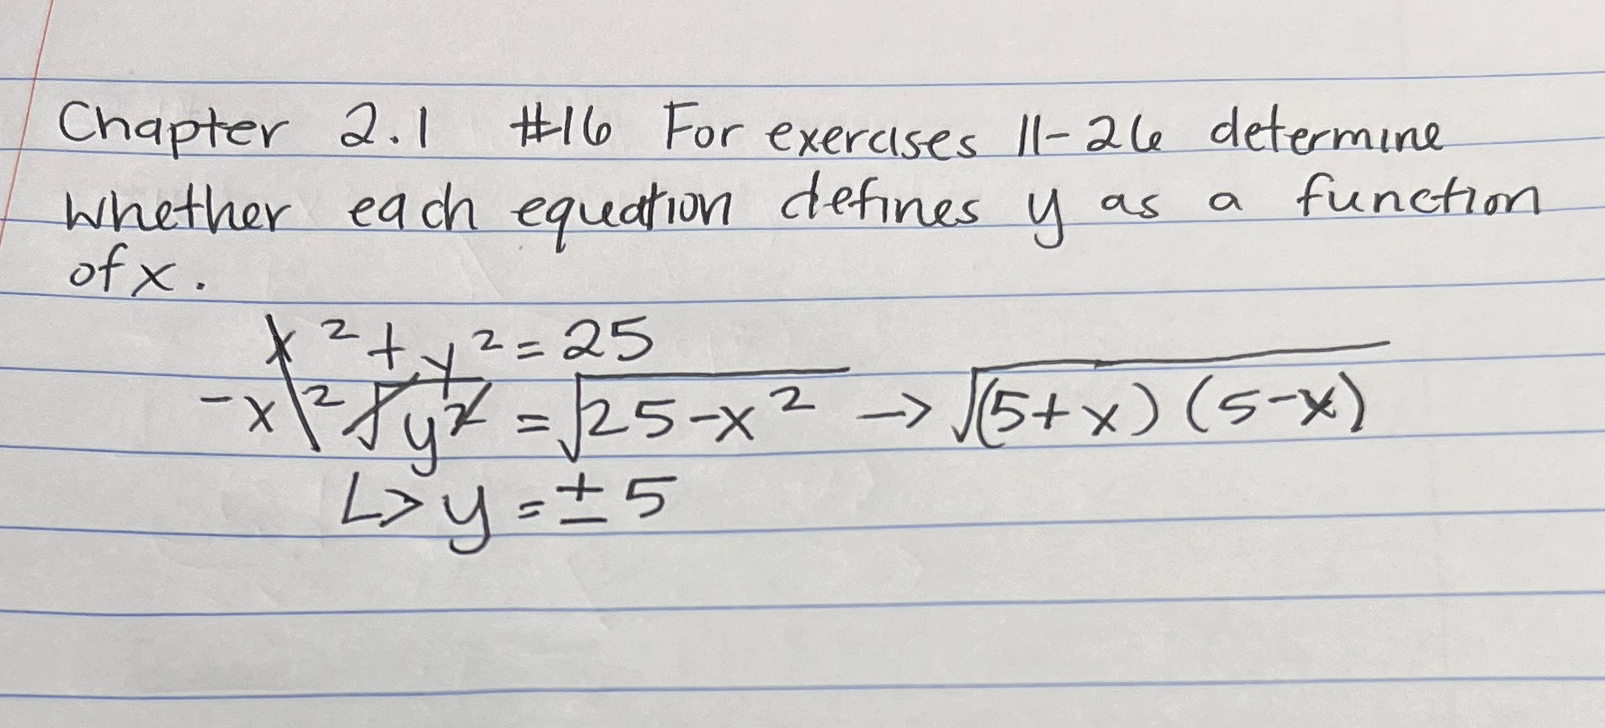 Chapter 2.1 #16 For exercises 11-26 determine
whether each equation defines y as a function
of x.
x² + y² = 25
-x² √y² = √25-x² → √(5+x)(5-x)
↳ y = ± 5